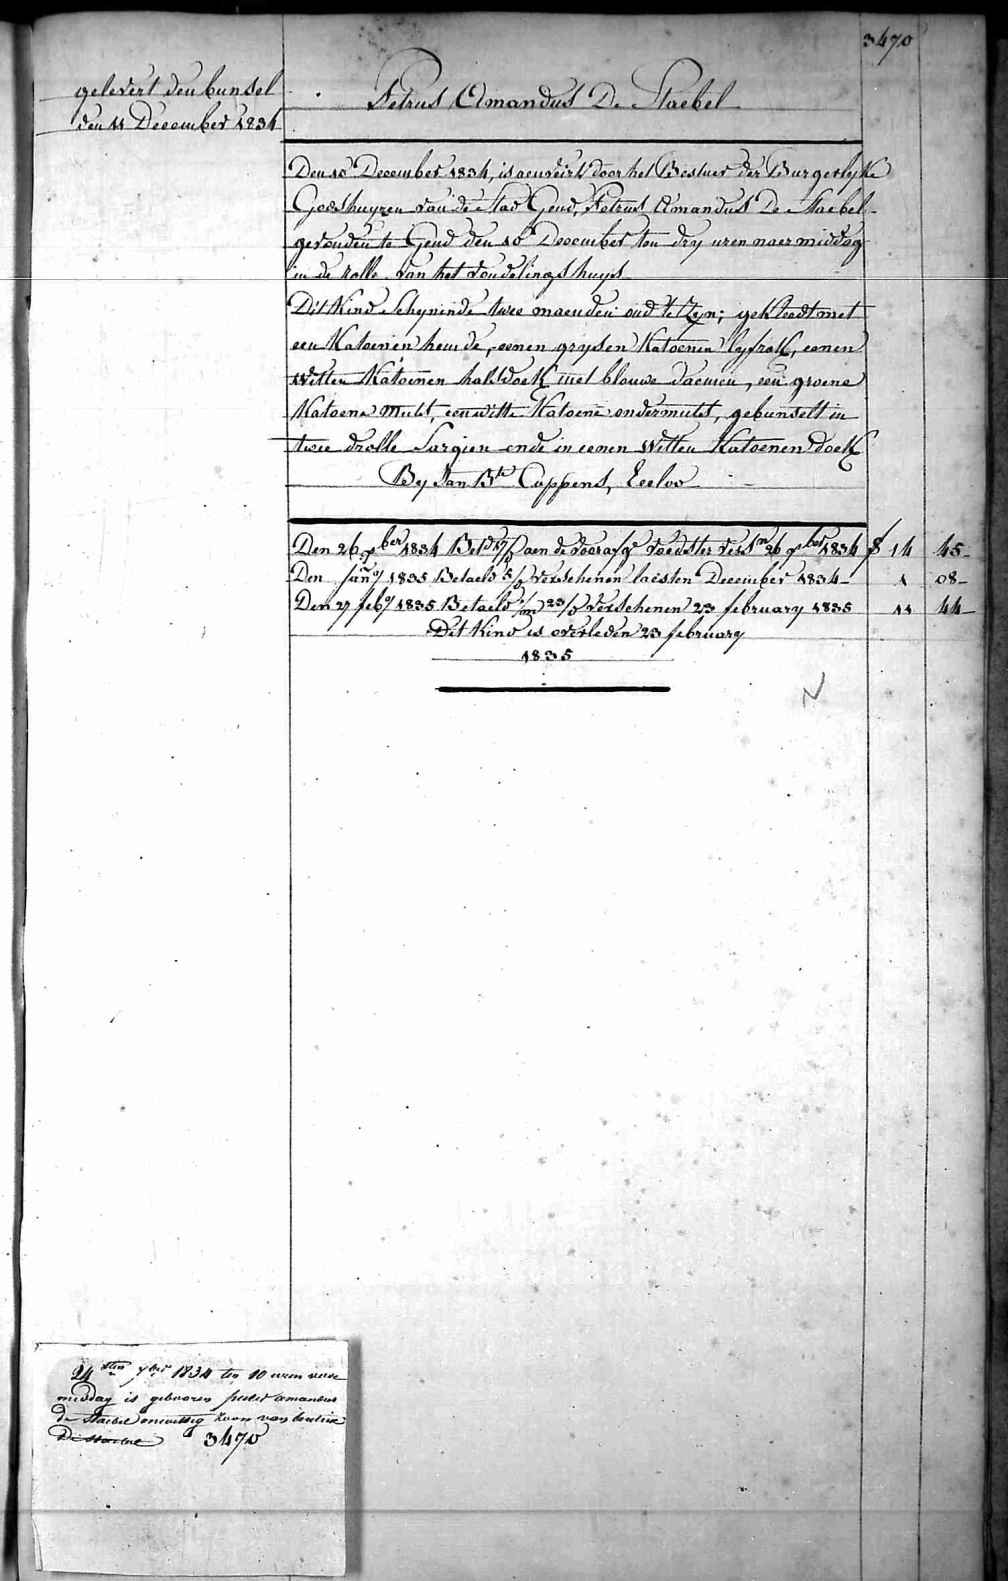 3470
gelevert den bunsel
den 11 December 1834
Petrus Amandus De Staebel
Den 10 December 1834, is aenveirt door het Bestuer der Burgerlyke
Godshuyzen van de Stad Gend, Petrus Amandus De Staebel
gevonden te Gend den 10 December ten dry uren naermiddag
in de rolle van het vondelingshuys
Dit Kind Schynende twee maenden oud te Zyn; gekleedt met
een Katoenen hemde, eenen grysen Katoenen lyfrok, eenen
Witten Katoenen halsdoek met blouwe daemen, een groene
Katoene Muts, een witte Katoene ondermuts, gebunselt in
twee drolle Sargien ende in eenen Witten Katoenen doek
By Jan Bte Coppens, Eecloo
Den 26 xber 1834 Betd aen de voorafge voedster versn 26 xber 1834 f 14 45
Den Jany 1835 Betaeld 5/ verschenen laesten December 1834 1 08
Den 27 feby 1835 Betaeld 1/m 23/ verschenen 23 february 1835 11 44
Dit Kind is overleden 23 february
1835
24sten 1834 ten 10 uren
middag is geboren peeter amandus
De Staebel onwettig zoon van
De Staebel 3470